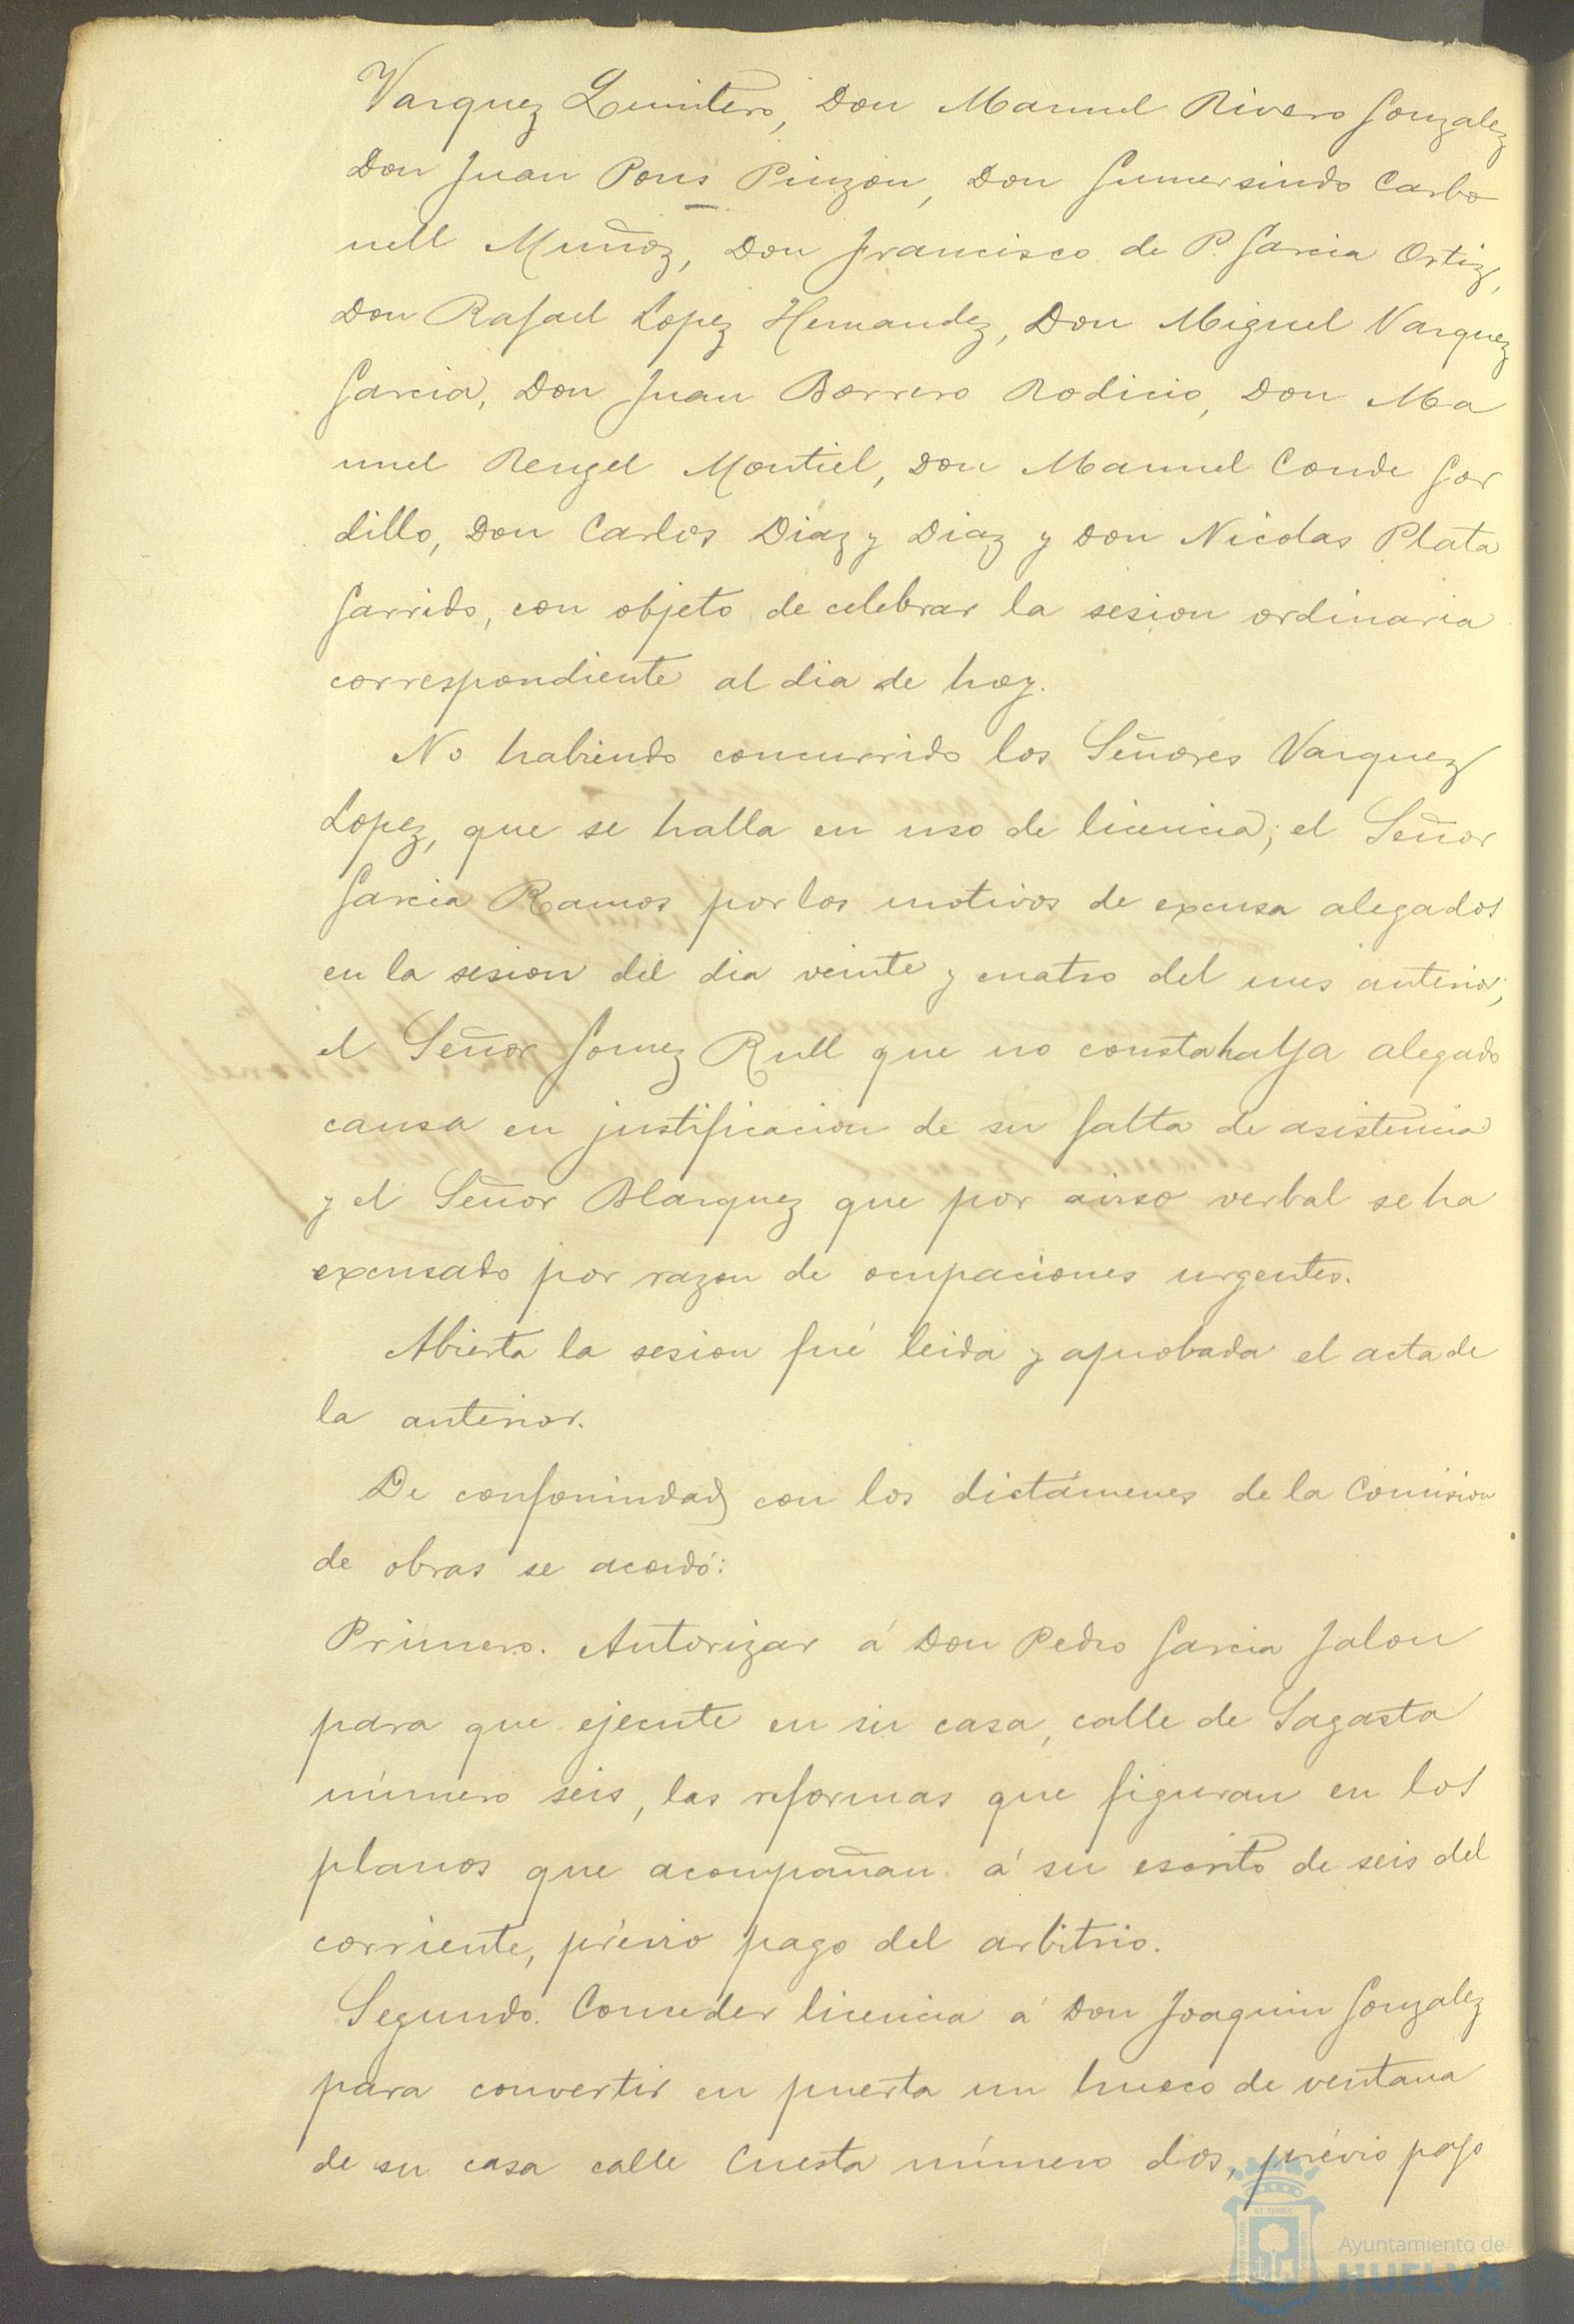 Vazquez Quintero, Don Manuel Rivero Gonzalez
Don Juan Pons Pinzon, Don Gumersindo Carbo
nell Muñoz, Don Francisco de P. Garcia Ortiz,
Don Rafael Lopez Hernandez, Don Miguel Vazquez
Garcia, Don Juan Borrero Rodicio, Don Ma
nuel Rengel Montiel, Don Manuel Conde Gor
dillo, Don Carlos Diaz y Diaz y Don Nicolas Plata
Garrido, con objeto de celebrar la sesion ordinaria
correspondiente al dia de hoy.
No habiendo concurrido los Señores Vazquez
Lopez, que se halla en uso de licencia; el Señor
Garcia Ramos por los motivos de excusa alegados
en la sesion del dia veinte y cuatro del mes anterior;
el Señor Gomez Rull que no consta halla alegado
causa en justificacion de su falta de asistencia
y el Señor Blazquez que por aviso verbal se ha
excusado por razon de ocupaciones urgentes.
Abierta la sesion fué leida y aprobada el acta de
la anterior.
De conformidad con los dictámenes de la Comision
de obras se acordó:
Primero. Autorizar á Don Pedro Garcia Jalon
para que ejecute en su casa, calle de Sagasta
número seis, las reformas que figuran en los
planos que acompañan á su escrito de seis del
corriente, prévio pago del arbitrio.
Segundo. Conceder licencia á Don Joaquin Gonzalez
para convertir en puerta un hueco de ventana
de su casa calle Cuesta número dos, prévio pago
Ayuntamiento de
HUELVA